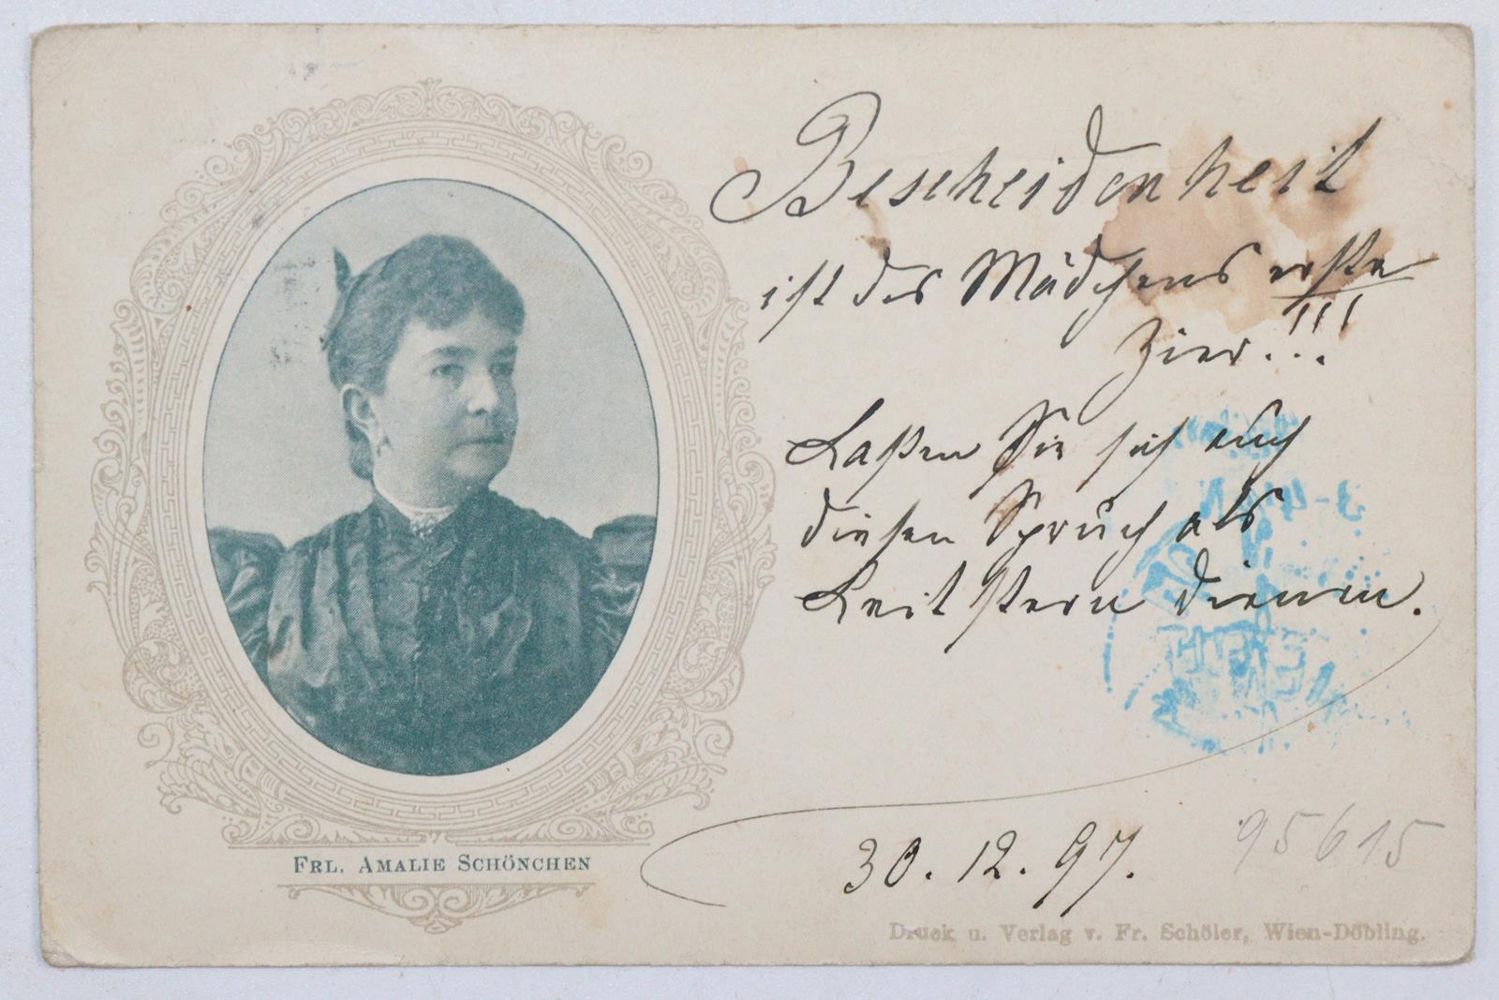 Bescheidenheit
ist des Mädchens erste
Zier!!!
Laßen Sie sich auch
diesen Spruch als
Leitstern dienen.
30.12.97.
95615
FRL. AMALIE SCHÖNCHEN
Druck u. Verlag v. Fr. Schöler, Wien-Döbling.